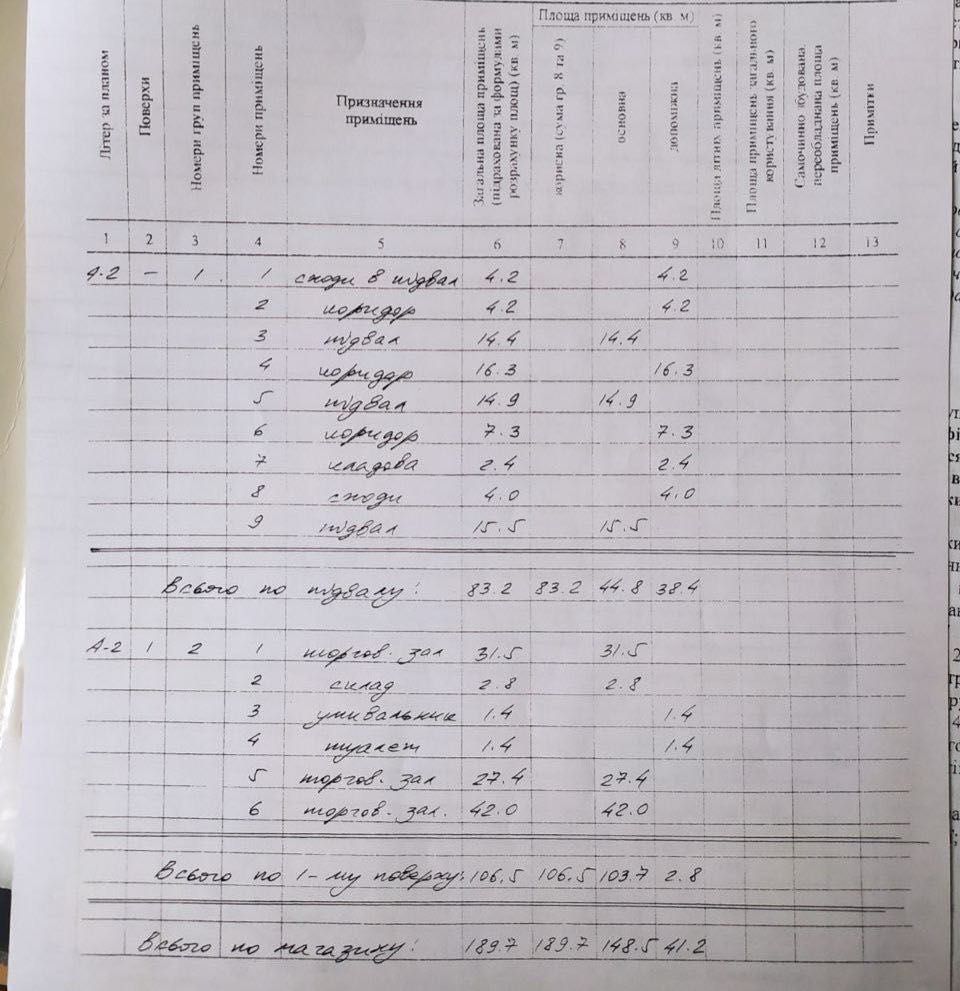 Літер за планом
Поверхи
Номери груп приміщень
Номери приміщень
Призначення
приміщень
Загальна площа приміщень
(підрахована за формулами
розрахунку площ) (кв. м)
Площа приміщень (кв. м)
корисна (сума гр. 8 та 9)
основна
допоміжна
Площа літніх приміщень (кв. м)
Площа приміщень загального
користування (кв. м)
Самочинно збудована,
переобладнана площа
приміщень (кв. м)
Примітки
1 2 3 4 5 6 7 8 9 10 11 12 13
А-2 – 1 1 сходи в підвал 4.2 4.2
2 коридор 4.2 4.2
3 підвал 14.4 14.4
4 коридор 16.3 16.3
5 підвал 14.9 14.9
6 коридор 7.3 7.3
7 кладова 2.4 2.4
8 сходи 4.0 4.0
9 підвал 15.5 15.5
Всього по підвалу: 83.2 83.2 44.8 38.4
А-2 1 2 1 торгов. зал 31.5 31.5
2 склад 2.8 2.8
3 умивальник 1.4 1.4
4 туалет 1.4 1.4
5 торгов. зал 27.4 27.4
6 торгов. зал. 42.0 42.0
Всього по 1-му поверху: 106.5 106.5 103.7 2.8
Всього по магазину: 189.7 189.7 148.5 41.2